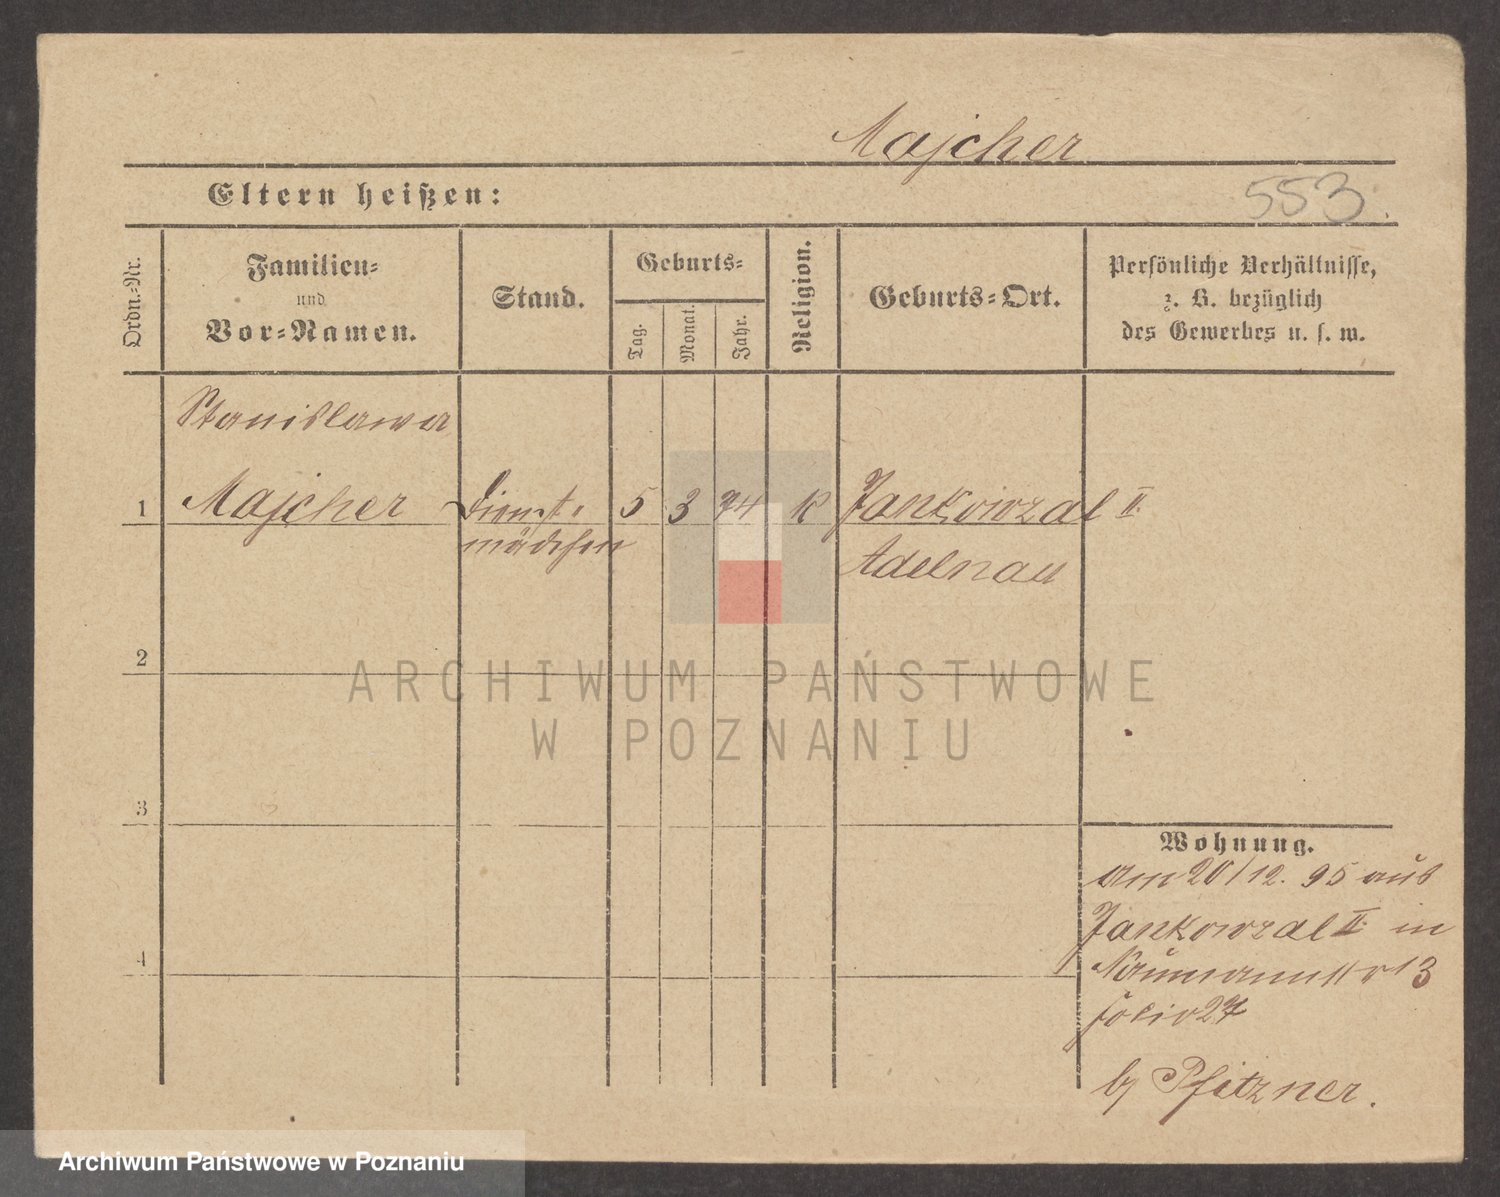 Majcher
Eltern heißen:
553.
Ordn.-Nr.
Familien-
und
Vor-Namen.
Stand.
Geburts-
Tag.
Monat.
Jahr.
Religion.
Geburts-Ort.
Persönliche Verhältnisse,
z. B. bezüglich
des Gewerbes u. s. w.
Stanislawa
1 Majcher Dienst- 5 3 74 K Jankowzal II
mädchen Adelnau
2
3
4
Wohnung.
am 20/12. 95 aus
Jankowzal II in
Naumannstr 13
folio 27
by Pfitzner.
ARCHIWUM PAŃSTWOWE
W POZNANIU
Archiwum Państwowe w Poznaniu